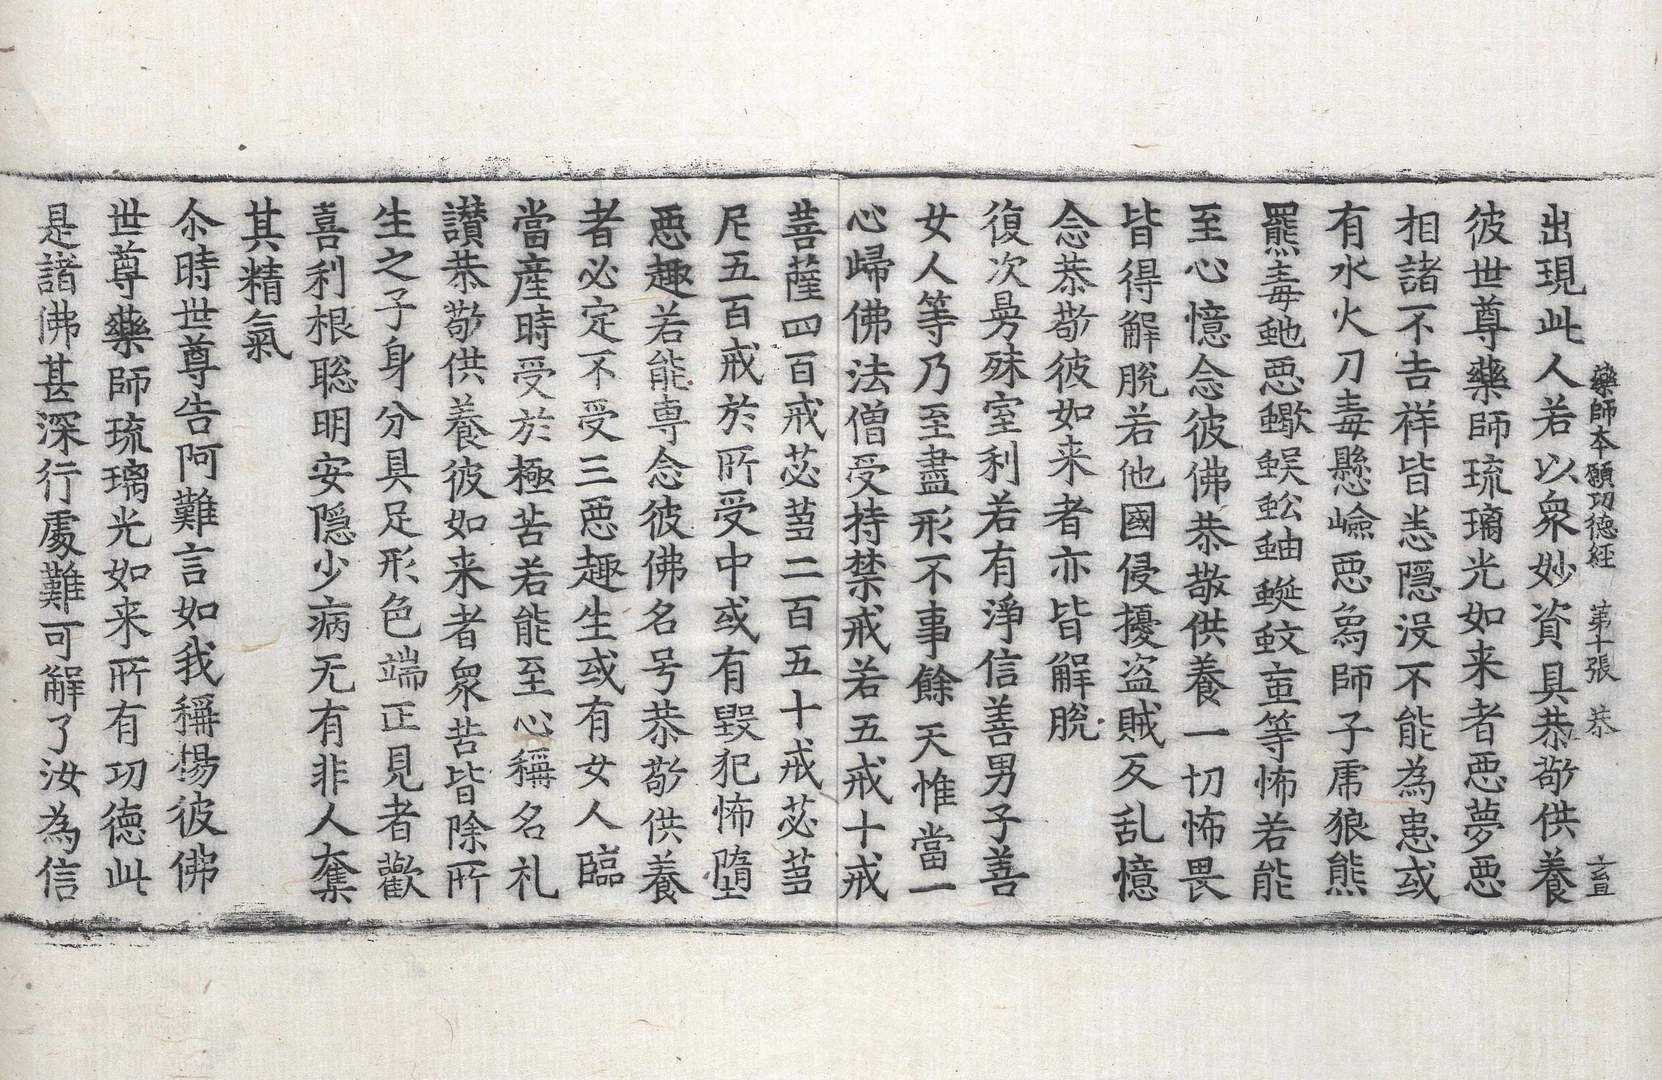 藥師本願功德經 第十張 恭
出現此人若以衆妙資具恭敬供養
彼世尊藥師琉璃光如来者惡夢惡
相諸不吉祥皆悉隱没不能為患或
有水火刀毒懸嶮惡象師子虎狼熊
羆毒虵惡蠍蜈蚣蚰蜒蚊䖟等怖若能
至心憶念彼佛恭敬供養一切怖畏
皆得解脫若他國侵擾盗賊反乱憶
念恭敬彼如来者亦皆解脫
復次曼殊室利若有淨信善男子善
女人等乃至盡形不事餘天惟當一
心歸佛法僧受持禁戒若五戒十戒
菩薩四百戒苾蒭二百五十戒苾蒭
尼五百戒於所受中或有毀犯怖墮
惡趣若能專念彼佛名号恭敬供養
者必定不受三惡趣生或有女人臨
當産時受於極苦若能至心稱名礼
讃恭敬供養彼如来者衆苦皆除所
生之子身分具足形色端正見者歡
喜利根聡明安隱少病无有非人奪
其精氣
尒時世尊告阿難言如我稱揚彼佛
世尊藥師琉璃光如来所有功德此
是諸佛甚深行處難可解了汝為信